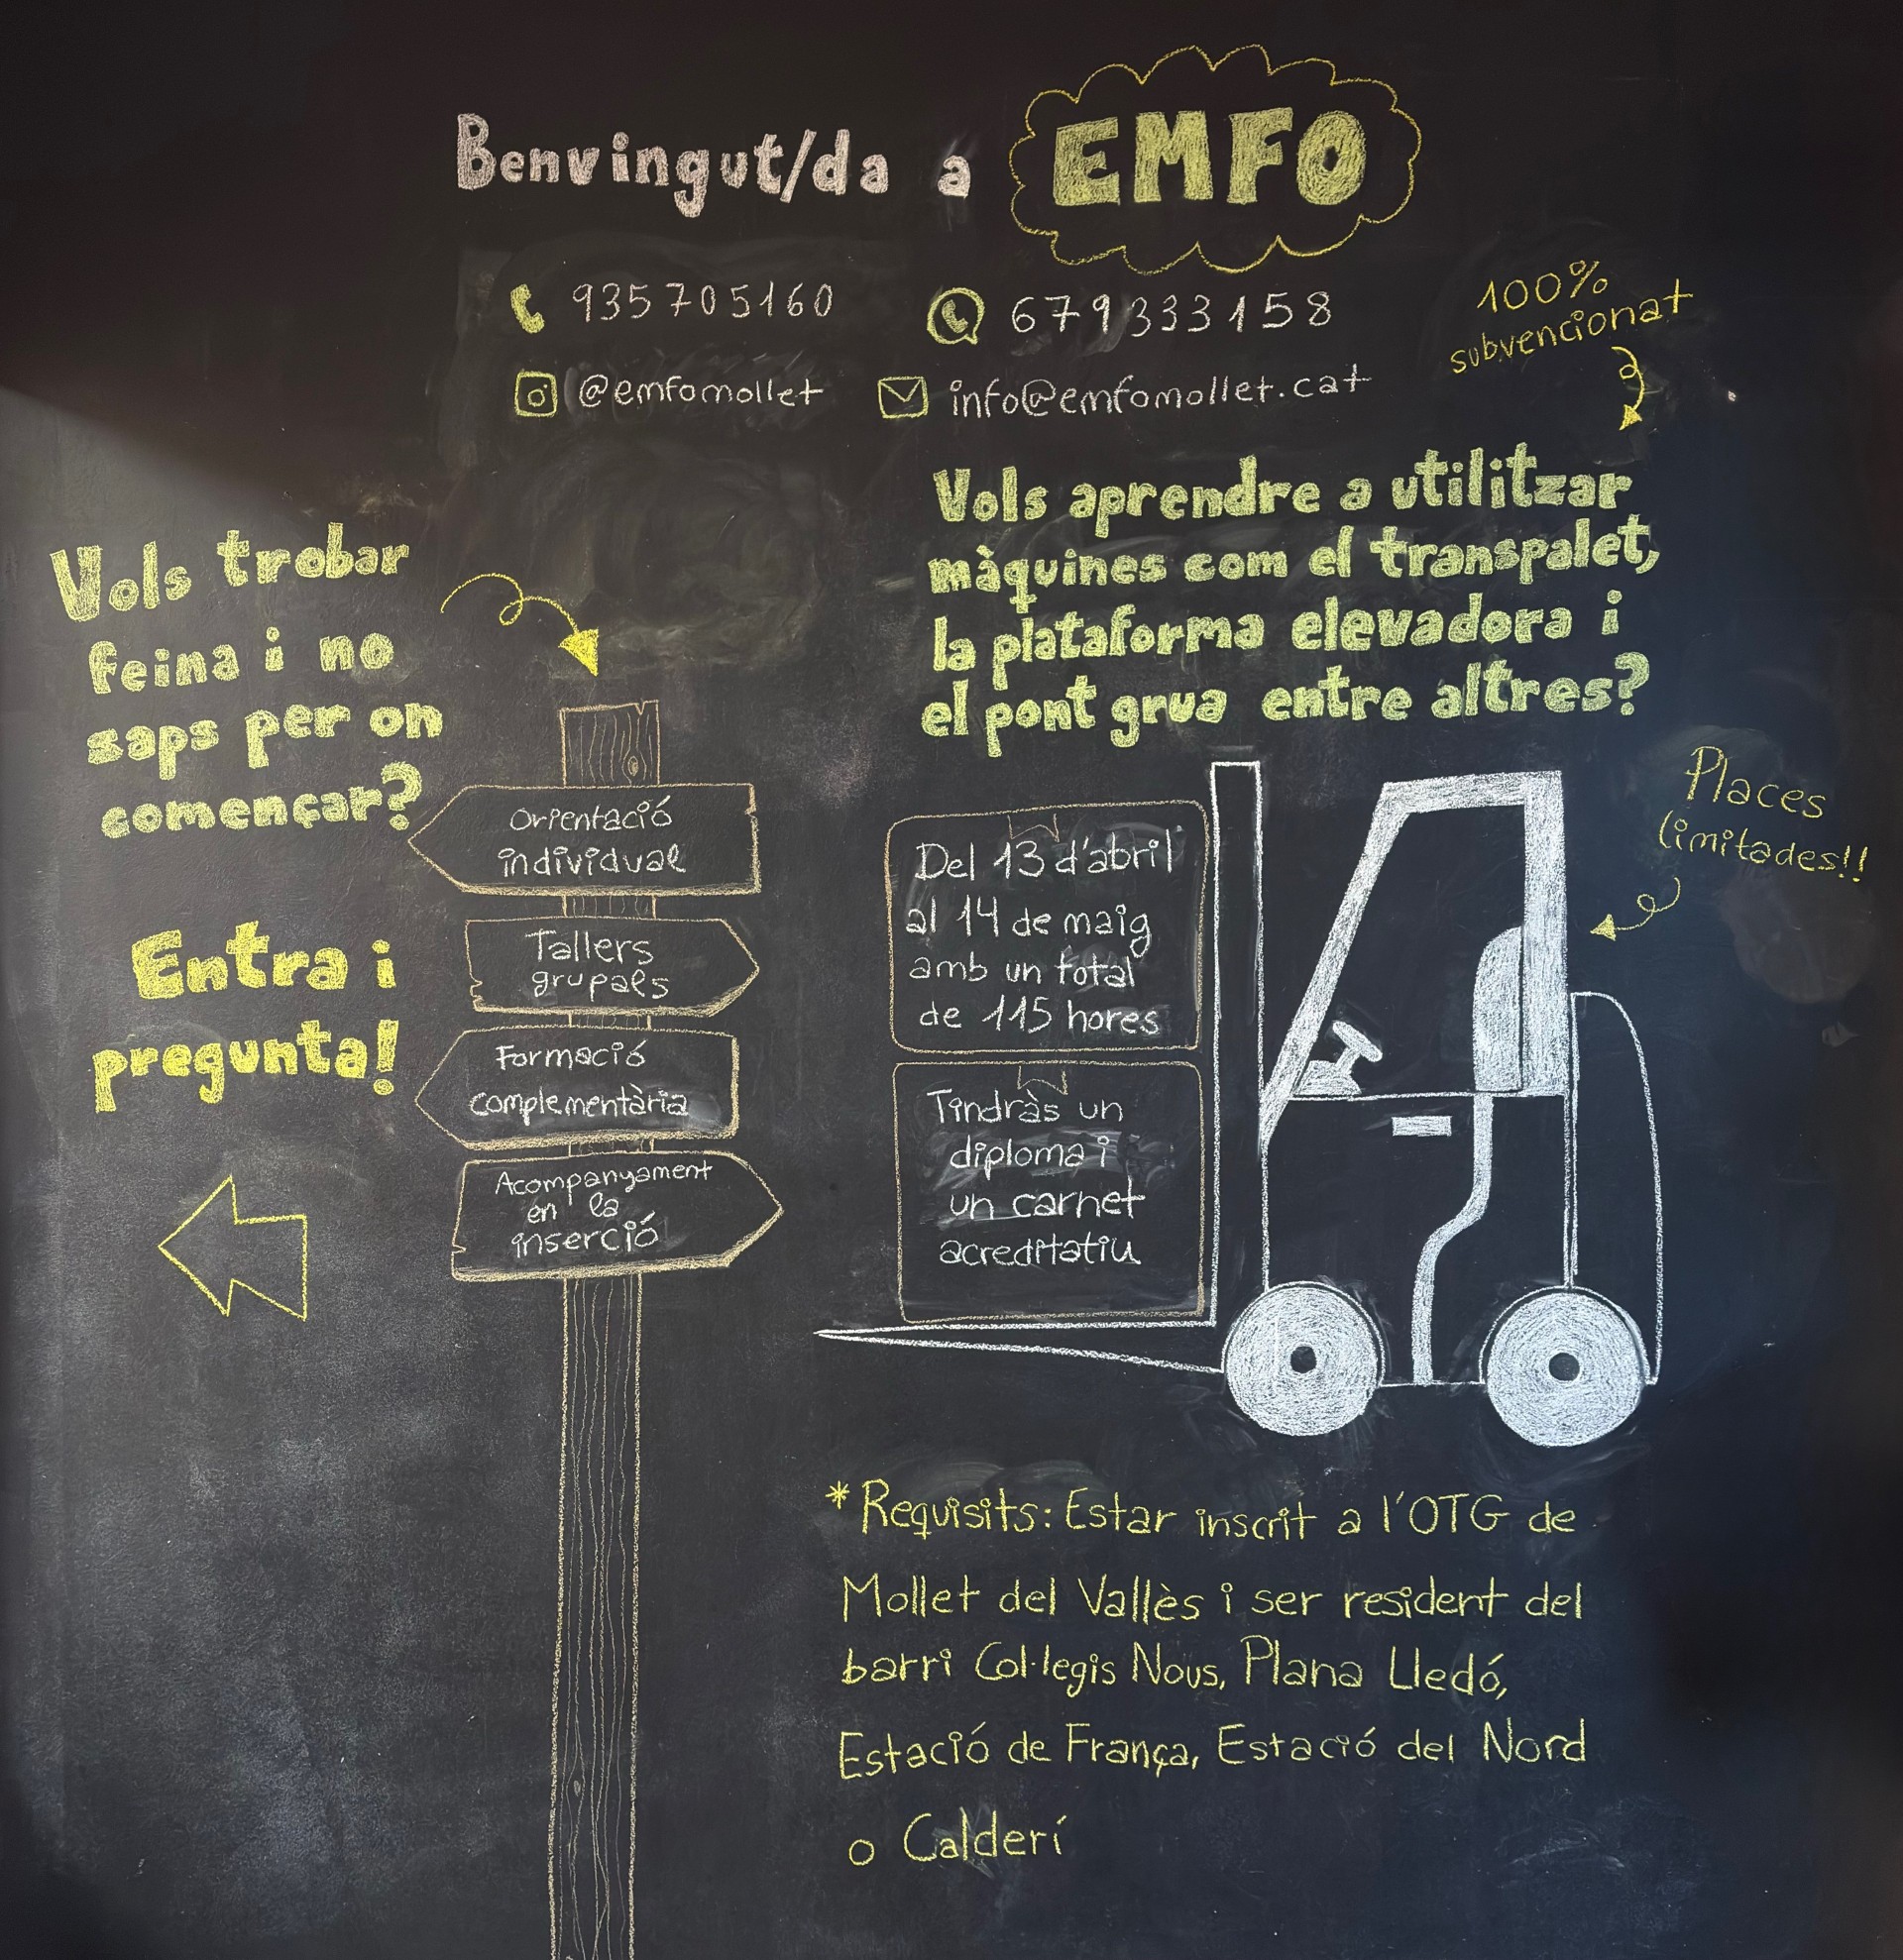 Benvingut/da a EMFO
935705160
679333158
@emfomollet
info@emfomollet.cat
100%
subvencionat
Vols trobar
feina i no
saps per on
començar?
Entra i
pregunta!
Orientació
individual
Tallers
grupals
Formació
complementària
Acompanyament
en la
inserció
Vols aprendre a utilitzar
màquines com el transpalet,
la plataforma elevadora i
el pont grua entre altres?
Places
limitades!!
Del 13 d'abril
al 14 de maig
amb un total
de 115 hores
Tindràs un
diploma i
un carnet
acreditatiu
*Requisits: Estar inscrit a l'OTG de
Mollet del Vallès i ser resident del
barri Col·legis Nous, Plana Lledó,
Estació de França, Estació del Nord
o Calderí